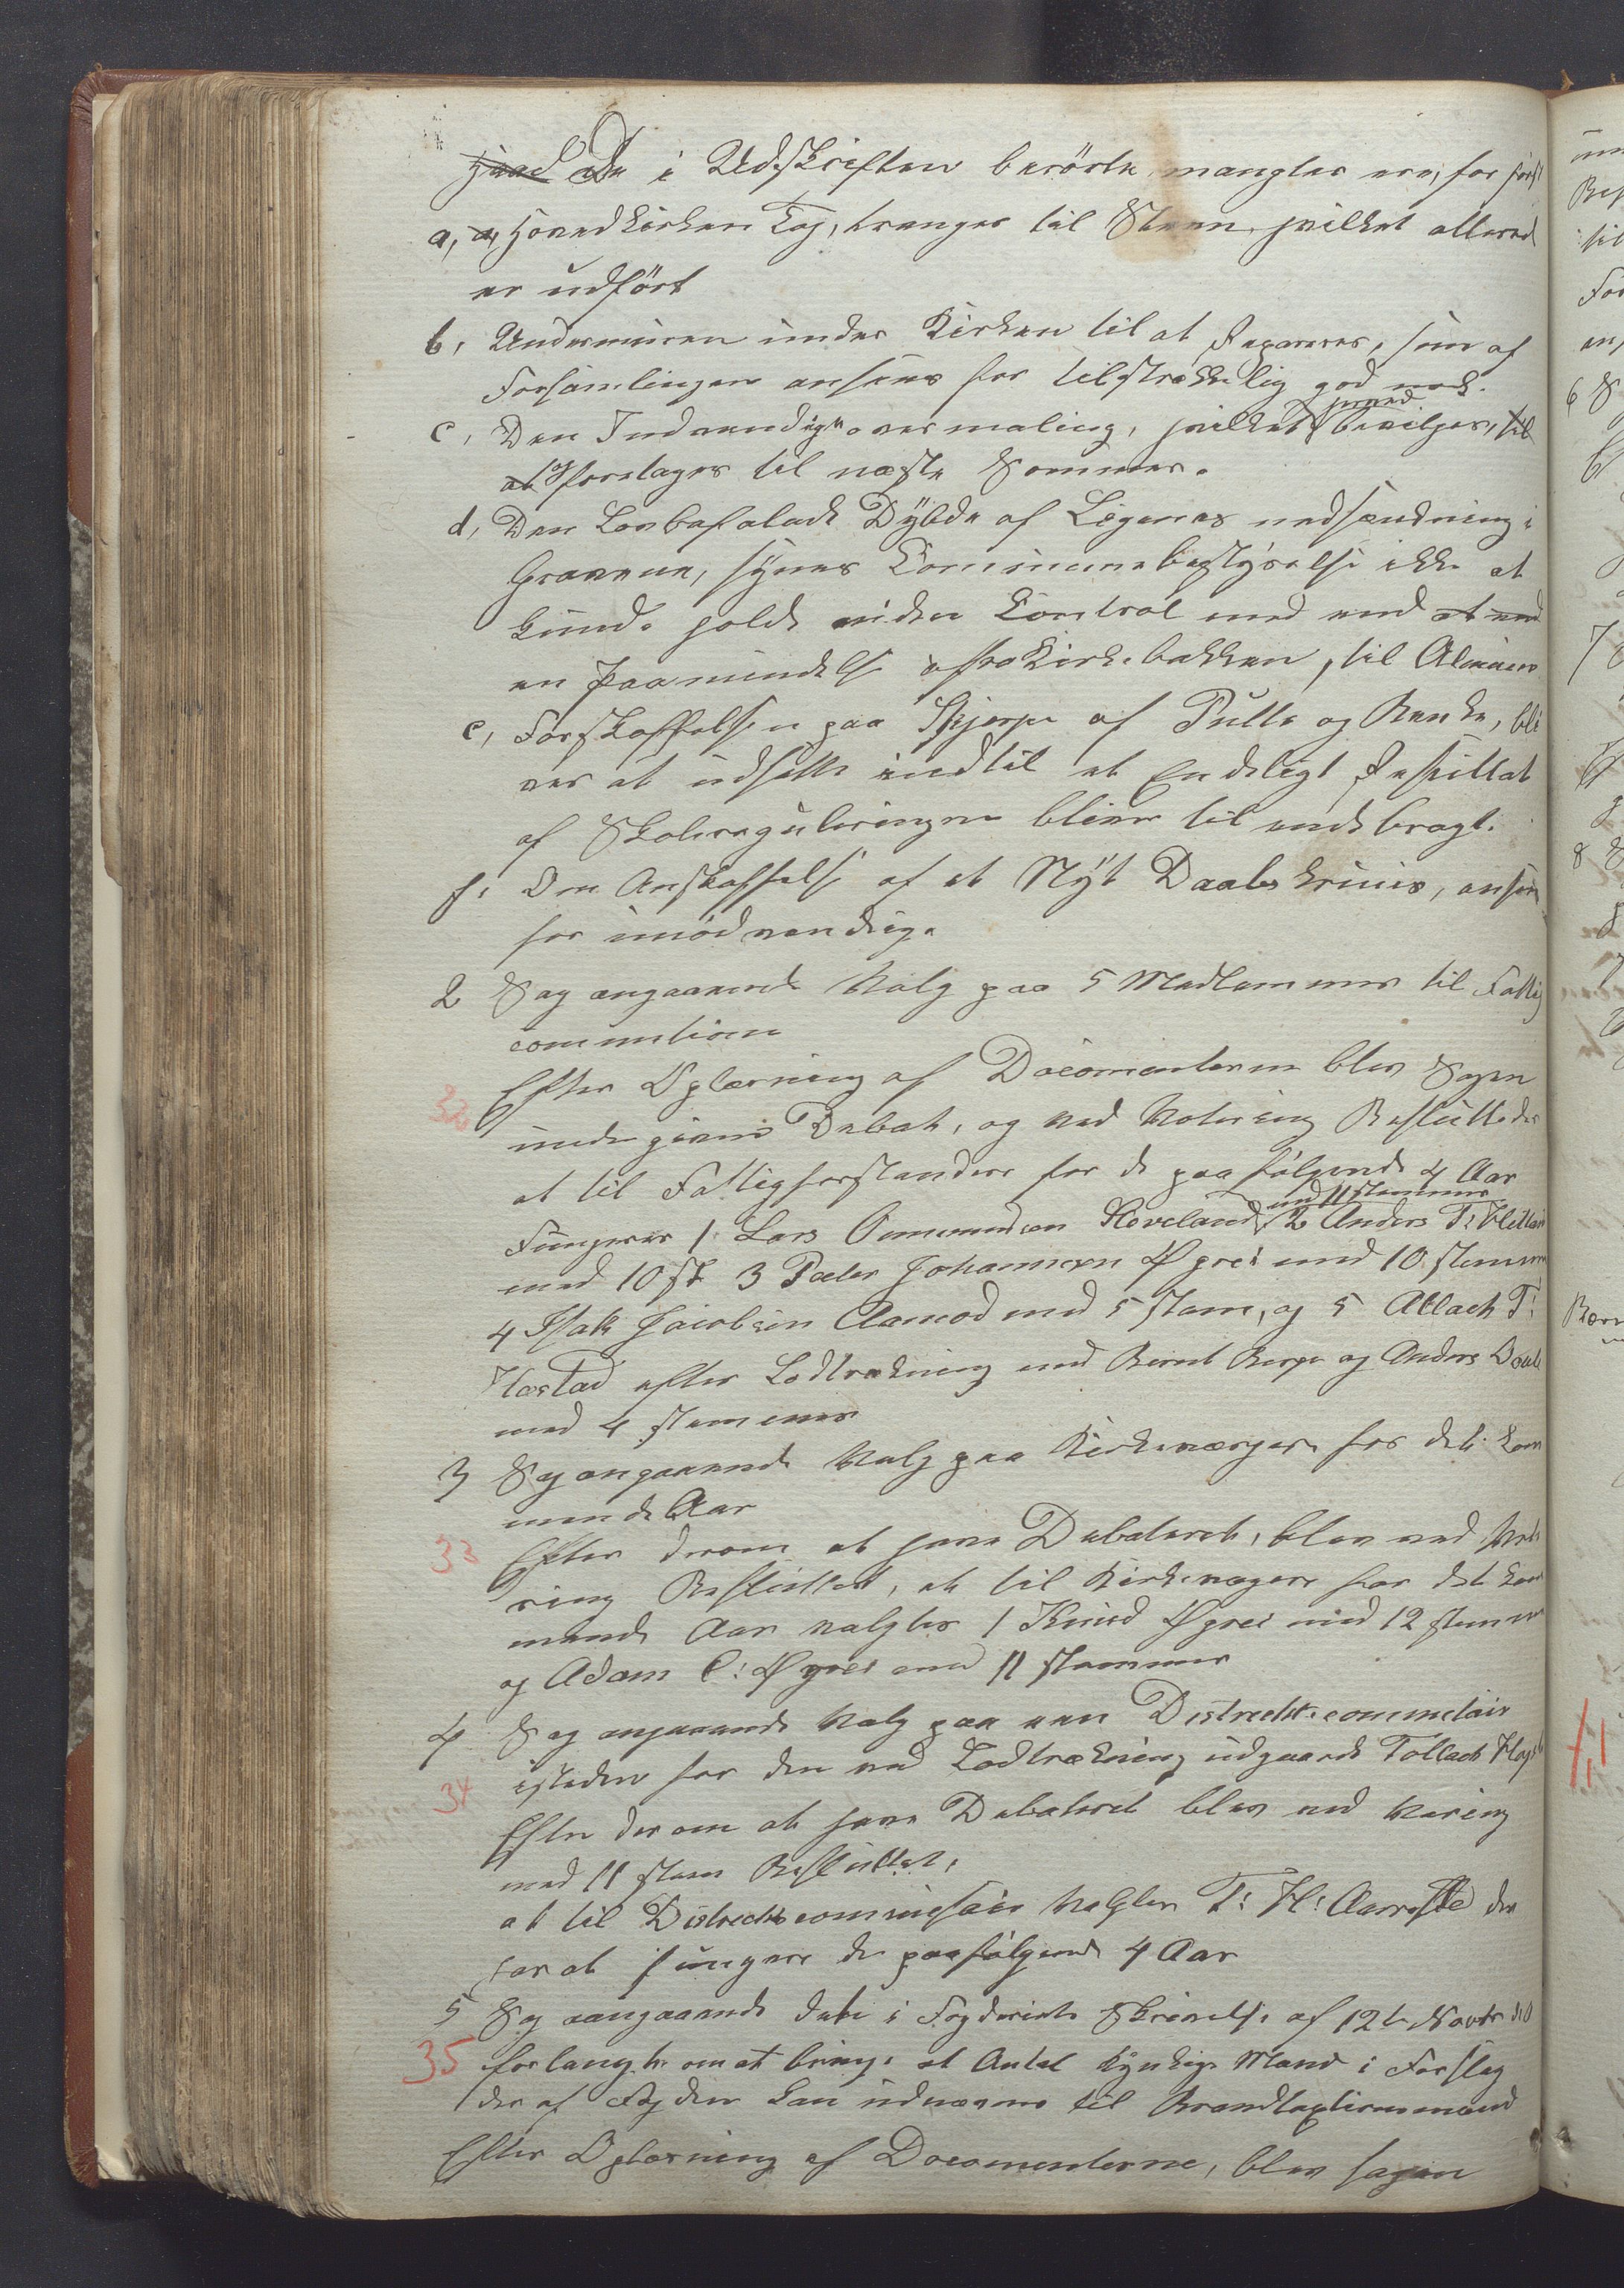 De i Udskriften berörte mangler ere, for först
a, Hovedkirken Tag, trenger til Steen, hvilket allered
er udfört
b, Undermuren under Kirken til at Repareres, som af
Forsamlingen ansees for tilstrækkelig god nok.
hermed
c, Den Indvendige overmaling, hvilket bevilges, til
at foretages til næste Sommer.
d, Den Lovbefalede Dÿbde af Ligenes nedsændning i
Gravene, sÿnes Communebestÿrelse ikke at
kunde holde viden Control med end at end
en Paamindelse fra Kirkebakken, til Almuen
e, Forskaffelsen paa Hjerpe af Pulte og Benke, bli
ver at udsætte indtil et Endeligt Resultat
af Skolereguleringen bliver til ende bragt.
f, Om Anskaffelse af et Nÿt Daabs kruus, ansees
for unödvendig.
2 Sag angaaende Valg paa 5 Medlemmer til Fattig
commetion
32 Efter Oplæsning af Documenterne blev Sagen
undergiven Debat, og ved Votering Besluttedes
at til Fattigforstandere for de paafölgende 4 Aar
med 11 stemmer
Fungerer 1 Lars Ommundsen Hoveland 2 Anders T:
med 10 st 3 Peder Johannesen Øgrei med 10 stemmer
4 Isak Jacobsen Aamod med 5 stem, og 5 Atlach T:
Hæstad efter Lodtrækning med Bernt Berge og Anders
med 4 stemmer
3 Sag angaaende Valg paa Kirkeværgere for det kom
mende Aar
33 Efter derom at have Debateret, blev ved Vote
ring Besluttet, at til Kirkeværgere for det kom
mende Aar valgtes 1 Knud Øgrei med 12 stemmer
og Adam C: Øgrei med 11 stemmer
4 Sag angaaende Valg paa een Districtscommetair
34 isteden for den ved Lodtrækning udgaaede Tollach
Efter derom at have Debateret blev ved Votering
med 11 stem Besluttet,
at til Districtscommesair Valgtes T: H: Aarrestad
for at fungere de paafölgende 4 Aar
5 Sag aangaaende dette i Fogderiets Skrivelse af 12te Novbr
35 forlangte om at bringe et Antal Kÿndige Mænd i Forslag
der af Fogden kan udnævnes til Brandtaxtionsmænd
Efter Oplæsning af Documenterne, blev sagen